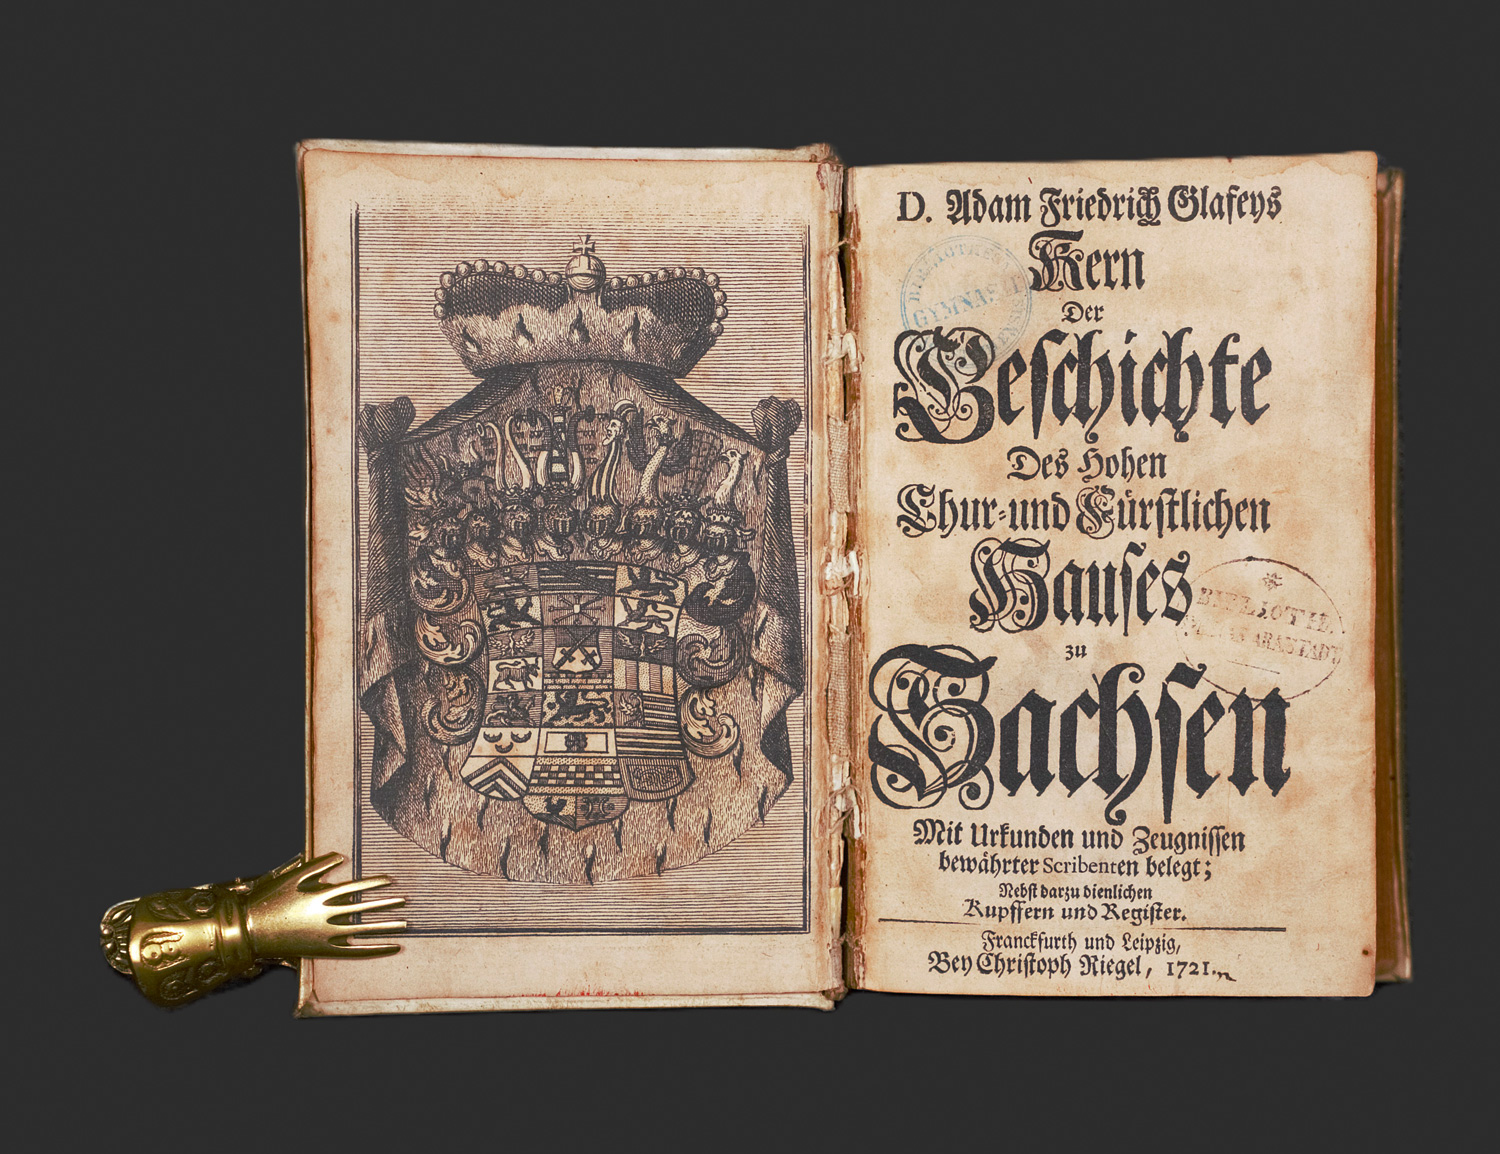 D. Adam Friedrich Glafeys
Kern
Der
Geschichte
Des Hohen
Chur- und Fürstlichen
Hauses
zu
Sachsen
Mit Urkunden und Zeugnissen
bewährter Scribenten belegt;
Nebst darzu dienlichen
Kupffern und Register.
Franckfurth und Leipzig,
Bey Christoph Riegel, 1721.
GYMNASII
BIBLIOTH.
ARNSTADT